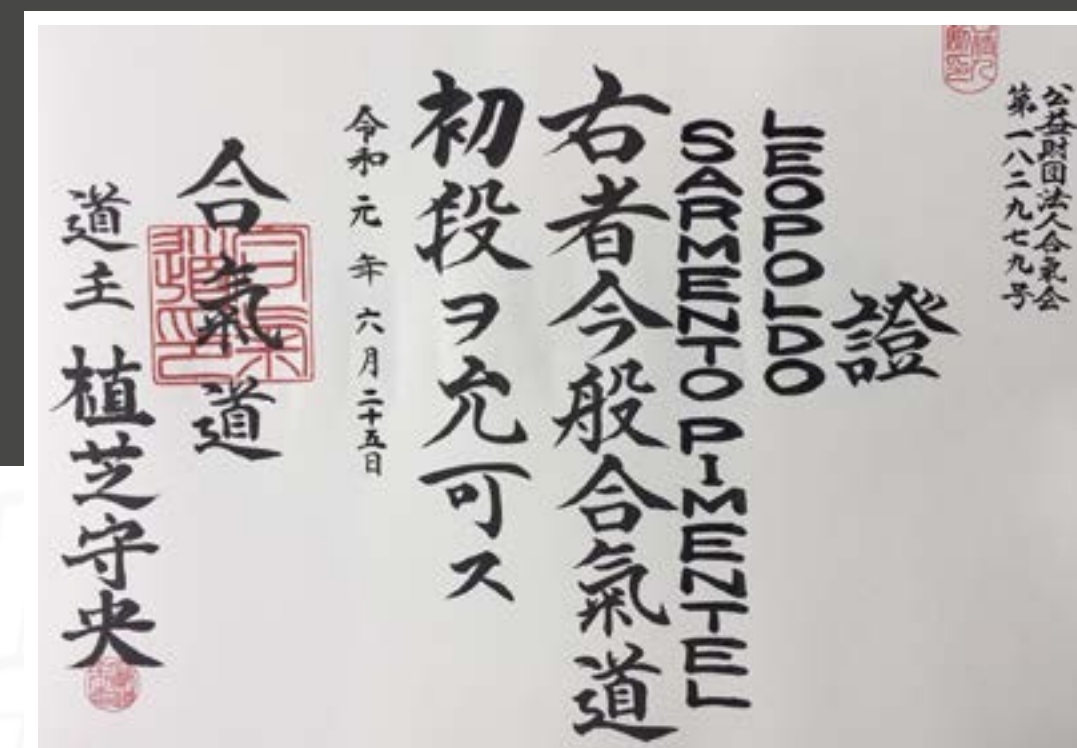 公益財団法人合氣会
第一八二九七九号
證
LEOPOLDO
SARMENTO PIMENTEL
右者今般合氣道
初段ヲ允可ス
令和元年六月二十五日
合氣道
道主 植芝守央